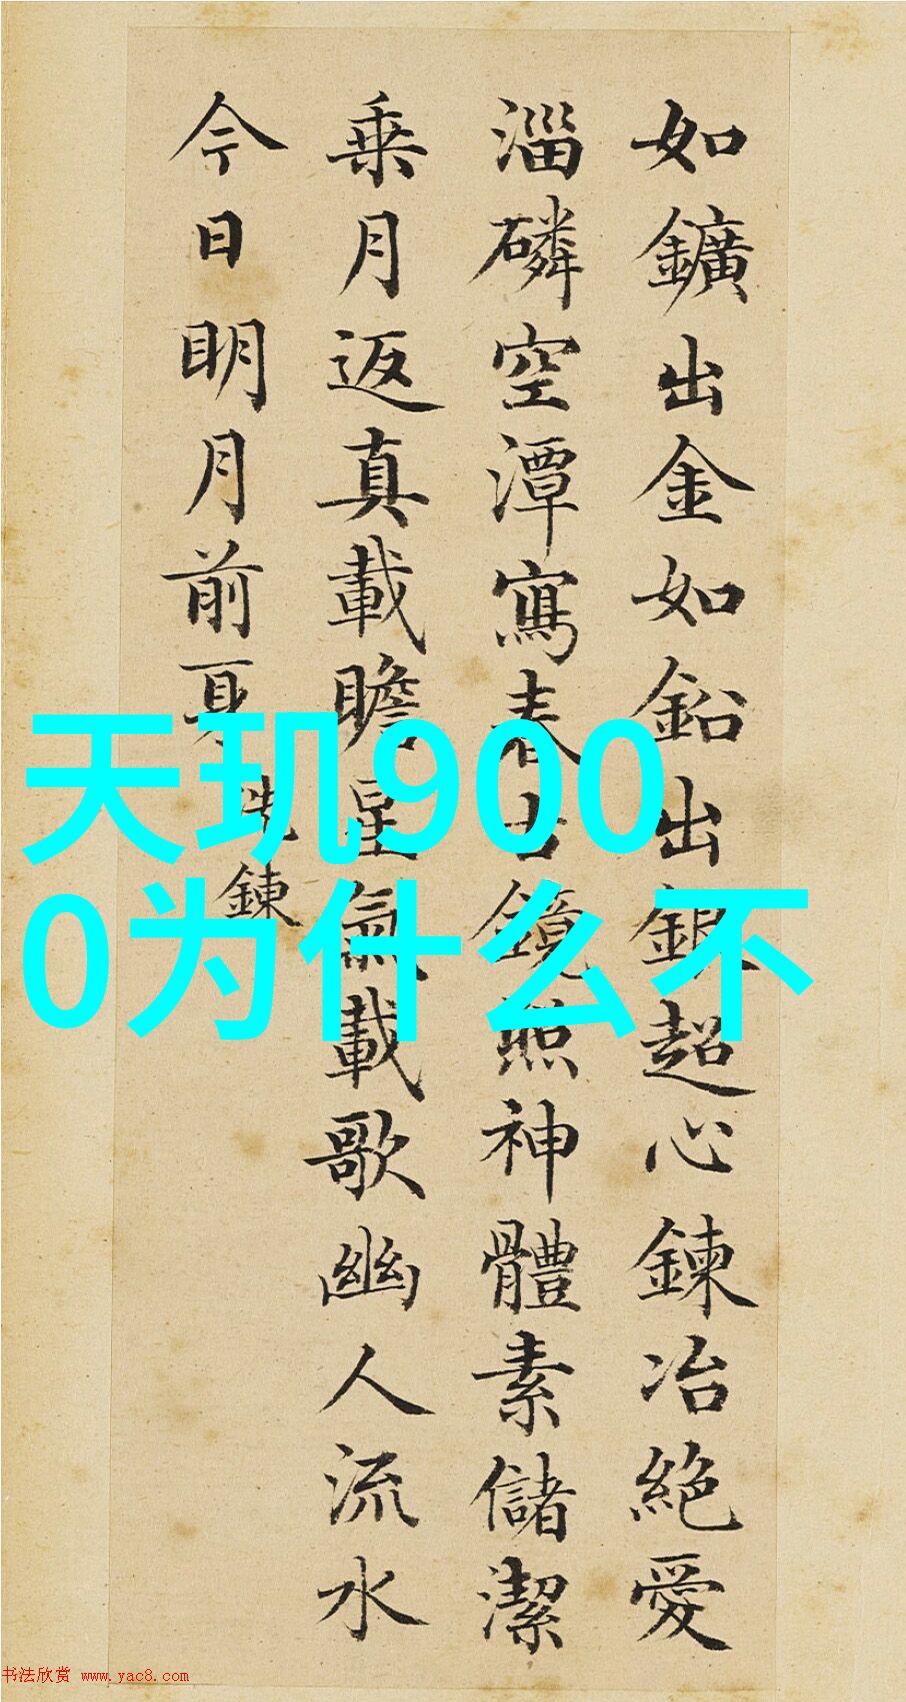 如鑛出金如鉛出銀超心鍊冶絕愛
淄磷空潭寫春古鏡照神體素儲潔
乗月返真載瞻星氣載歌幽人流水
今日明月前身
洗鍊
天玑900
0为什么不
书法欣赏 www.yac8.com